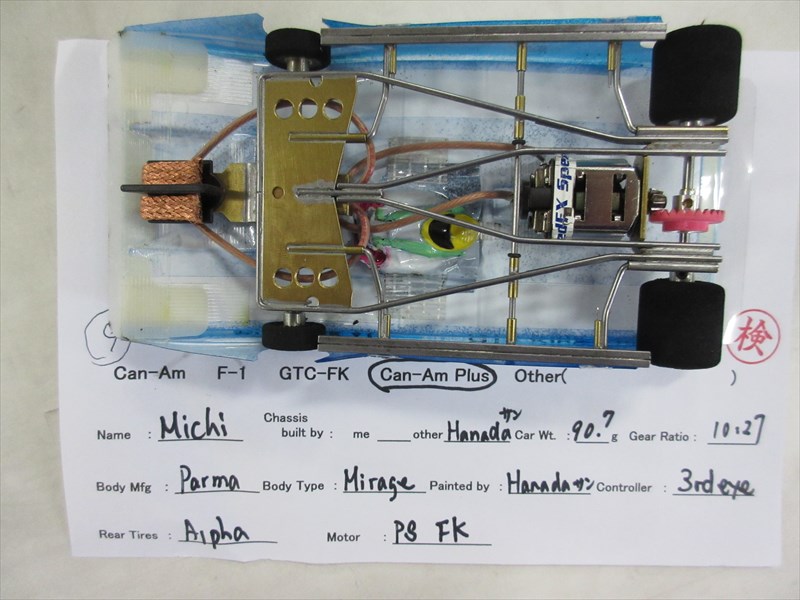 9
検
Can-Am F-1 GTC-FK Can-Am Plus Other( )
Name : Michi Chassis built by : me ___ other Hanadaサン Car Wt. : 90.7 g Gear Ratio : 10:27
Body Mfg : Parma Body Type : Mirage Painted by : Hanadaサン Controller : 3rd eye
Rear Tires : Alpha Motor : PS FK